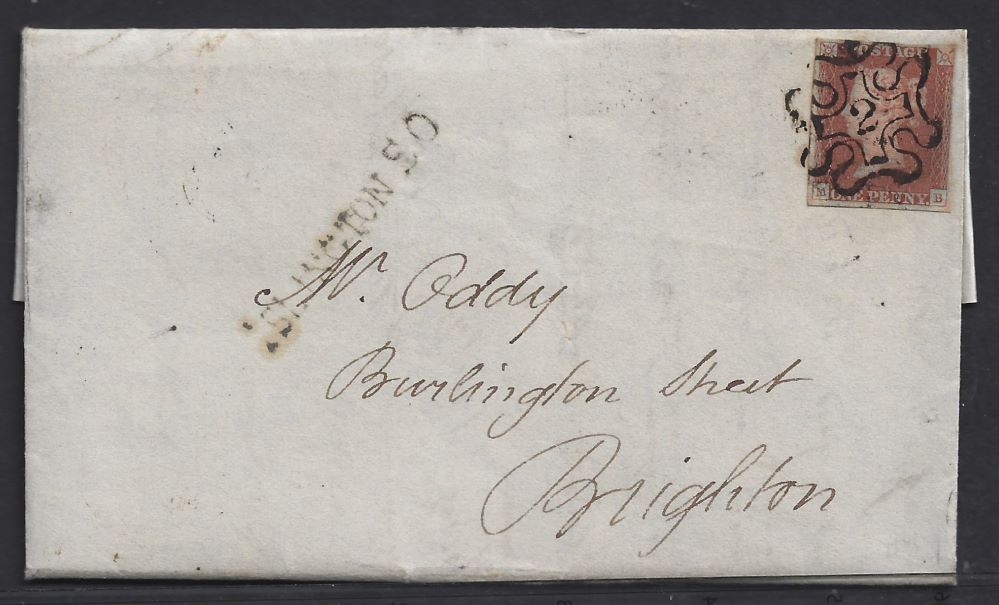 POSTAGE
2
ONE PENNY.
M B
ISLINGTON S.O
Mr. Oddy
Burlington Street
Brighton